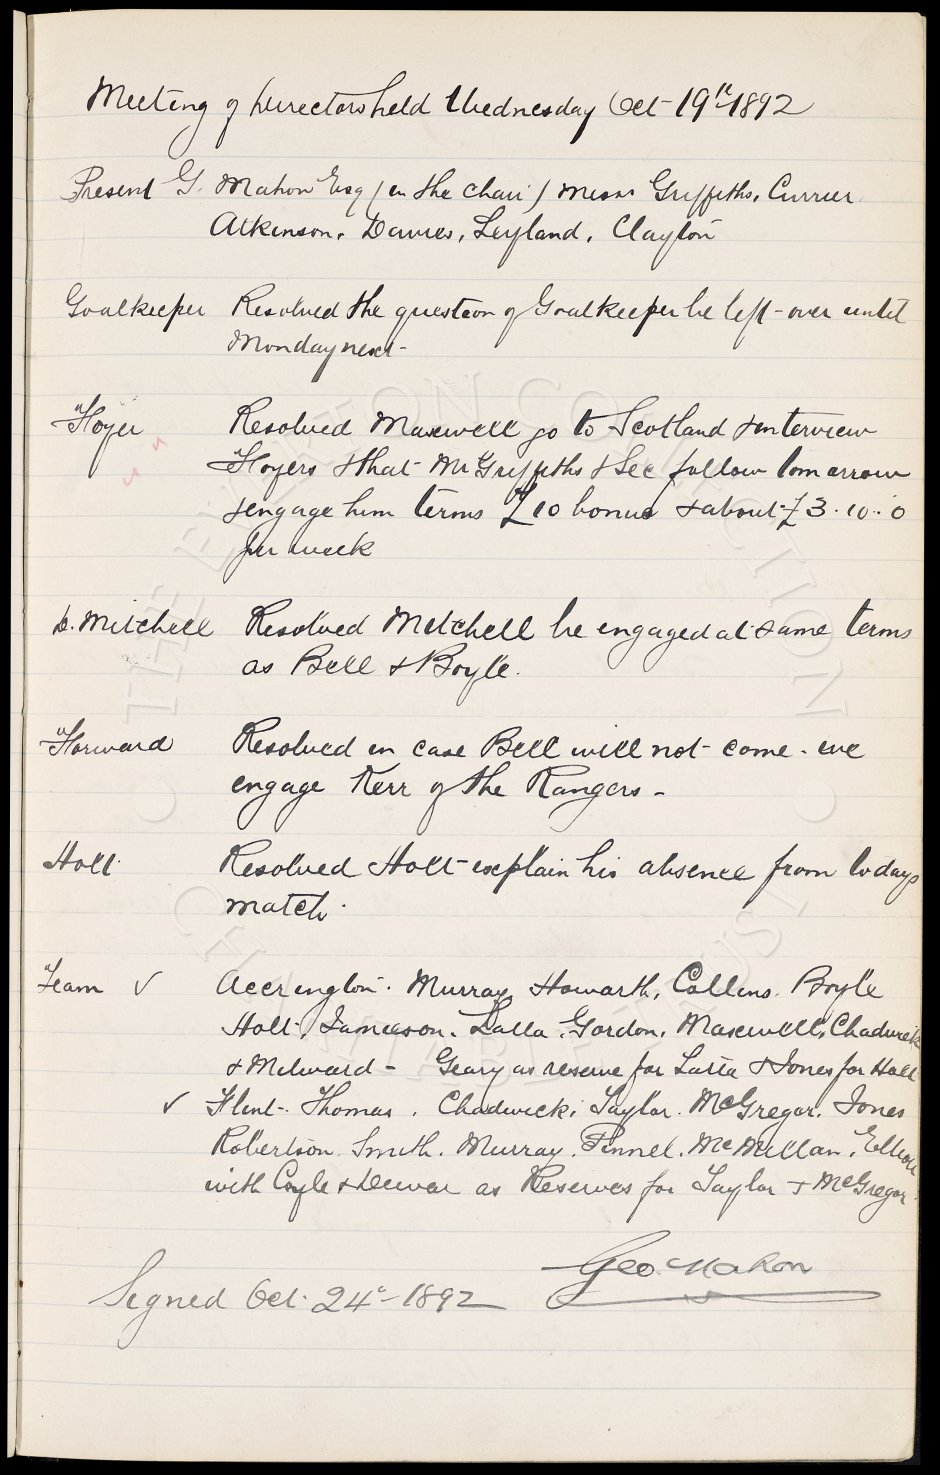 Meeting of Directors held Wednesday Oct 19th 1892
Present G. Mahon Esq (in the chair) Messrs Griffiths, Currier
Atkinson, Davies, Leyland, Clayton
Goalkeeper Resolved the question of Goalkeeper be left over until
Monday next
Foyer Resolved Maxwell go to Scotland & interview
Foyers & that Mr Griffiths & Sec follow tomorrow
& engage him terms £10 bonus & about £3.10.0
per week
D. Mitchell Resolved Mitchell be engaged at same terms
as Bell & Boyle.
Forward Resolved in case Bell will not come - we
engage Kerr of the Rangers -
Holt Resolved Holt explain his absence from todays
match.
Team ✓ Accrington. Murray, Howarth, Collins. Boyle
Holt, Jameson. Latta. Gordon. Maxwell, Chadwick
& Milward - Geary as reserve for Latta & Jones for Holt
✓ Flint - Thomas. Chadwick. Taylor. McGregor. Jones
Robertson. Smith. Murray. Pinnel. McMillan, Elliott
with Coyle & Dewar as Reserves for Taylor & McGregor
Signed Oct. 24th 1892 Geo Mahon
THE EVERTON COLLECTION
CHARITABLE TRUST